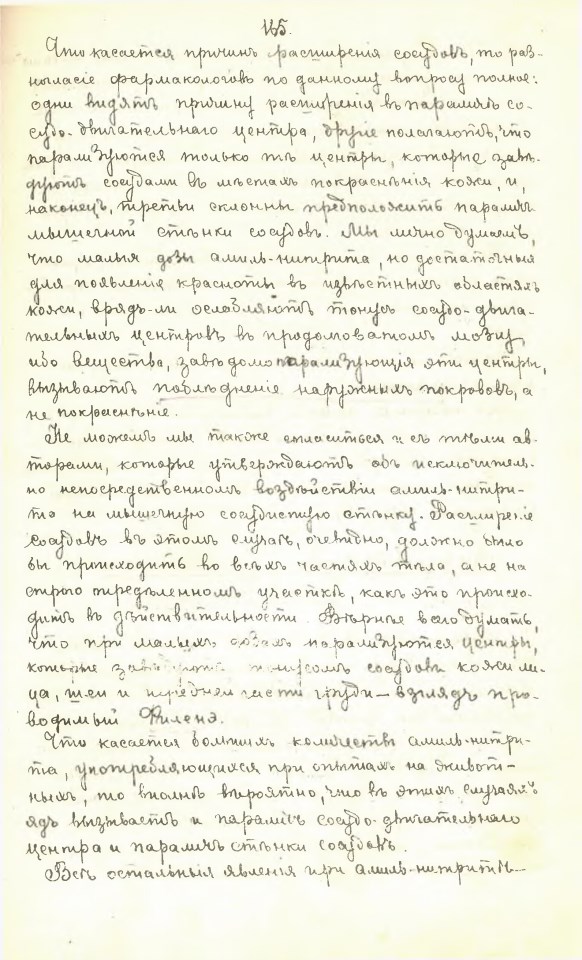 165.
Что касается причинъ расширенія сосудовъ, то раз-
ногласіе фармакологовъ по данному вопросу полное:
одни видятъ причину расширенія въ параличѣ со-
судо-двигательнаго центра, другіе полагаютъ, что
парализуются только тѣ центры, которые завѣ-
дуютъ сосудами въ мѣстахъ покраснѣнія кожи, и,
наконецъ, третьи склонны предположить параличъ
мышечной стѣнки сосудовъ. Мы лично думаемъ,
что малыя дозы амиль-нитрита, но достаточныя
для появленія красноты въ извѣстныхъ областяхъ
кожи, врядъ-ли ослабляютъ тонусъ сосудо-двига-
тельныхъ центровъ въ продолговатомъ мозгу,
ибо вещества, завѣдомо парализующія эти центры,
вызываютъ поблѣднѣніе наружныхъ покрововъ, а
не покраснѣніе.
Не можемъ мы также согласиться и съ тѣми ав-
торами, которые утверждаютъ объ исключитель-
но непосредственномъ воздѣйствіи амиль-нитри-
та на мышечную сосудистую стѣнку. Расширеніе
сосудовъ въ этомъ случаѣ, очевидно, должно было
бы происходить во всѣхъ частяхъ тѣла, а не на
строго опредѣленномъ участкѣ, какъ это происхо-
дитъ въ дѣйствительности. Вѣрнѣе всего думать,
что при малыхъ дозахъ парализуются центры,
которые завѣдуютъ тонусомъ сосудовъ кожи ли-
ца, шеи и передней части груди — взглядъ про-
водимый Филенэ.
Что касается большихъ количествъ амиль-нитри-
та, употребляющихся при опытахъ на живот-
ныхъ, то вполнѣ вѣроятно, что въ этихъ случаяхъ
ядъ вызываетъ и параличъ сосудо-двигательнаго
центра и параличъ стѣнки сосудовъ.
Всѣ остальныя явленія при амиль-нитритѣ